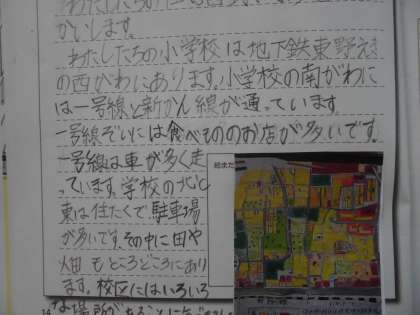 かいします。
わたしたちの小学校は地下鉄東野えき
の西がわにあります。小学校の南がわに
は一号線と新かん線が通っています。
一号線ぞいには食べもののお店が多いです。
一号線は車が多く走
っています。学校の北と
東は住たくで、駐車場
が多いです。その中に田や
畑もところどころにあり
ます。校区にはいろいろ
な場所があることに